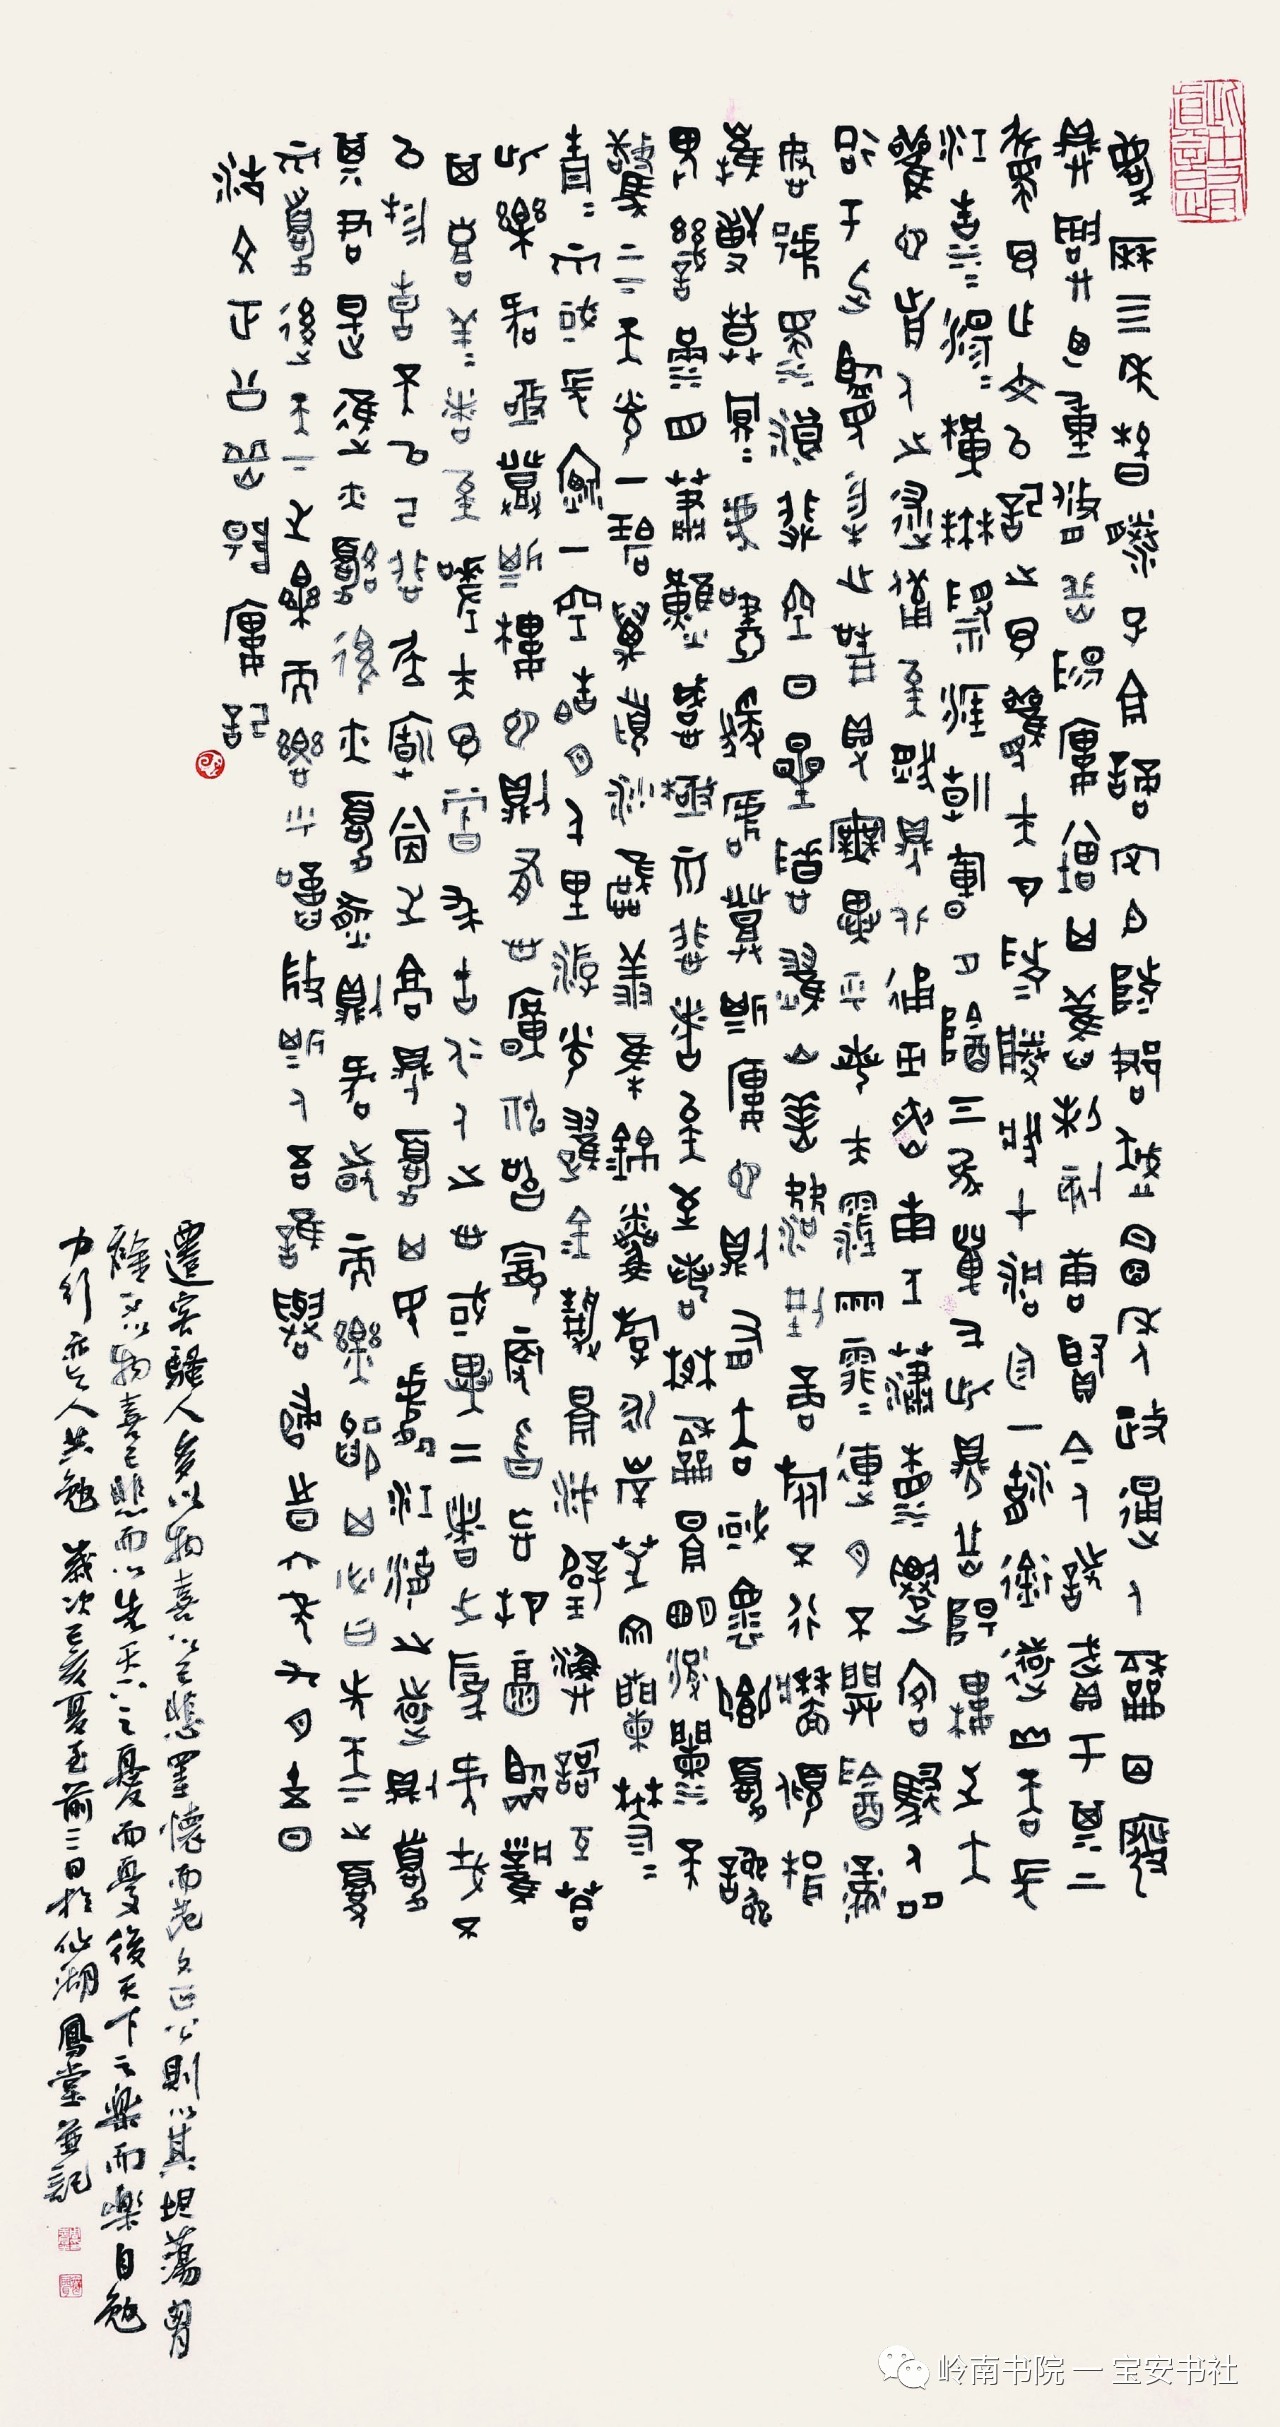 慶曆四年春滕子京謫守巴陵郡越明年政通人和百廢
具興乃重修岳陽樓增其舊制刻唐賢今人詩賦于其上
屬予作文以記之予觀夫巴陵勝狀在洞庭一湖銜遠山吞長
江浩浩湯湯橫無際涯朝暉夕陰氣象萬千此則岳陽樓之大
觀也前人之述備矣然則北通巫峽南極瀟湘遷客騷人多
會于此覽物之情得無異乎若夫霪雨霏霏連月不開陰風
怒號濁浪排空日星隱曜山岳潛形商旅不行檣傾楫
摧薄暮冥冥虎嘯猿啼登斯樓也則有去國懷鄉憂讒
畏譏滿目蕭然感極而悲者矣至若春和景明波瀾不
驚上下天光一碧萬頃沙鷗翔集錦鱗游泳岸芷汀蘭郁郁
青青而或長煙一空皓月千里浮光躍金靜影沉璧漁歌互答
此樂何極登斯樓也則有心曠神怡寵辱皆忘把酒臨風
其喜洋洋者矣嗟夫予嘗求古仁人之心或異二者之為何哉不
以物喜不以己悲居廟堂之高則憂其民處江湖之遠則憂
其君是進亦憂退亦憂然則何時而樂耶其必曰先天下之憂
而憂後天下之樂而樂乎噫微斯人吾誰與歸時六年九月十五日
范文正公岳陽樓記
遷客騷人多以物喜以己悲墨懷而范文正公則以其坦蕩胸
襟不以物喜己悲而以先天下之憂而憂後天下之樂而樂自勉
力行亦與人共勉 歲次己亥夏至前三日於仙湖鳳堂並記
岭南书院 — 宝安书社